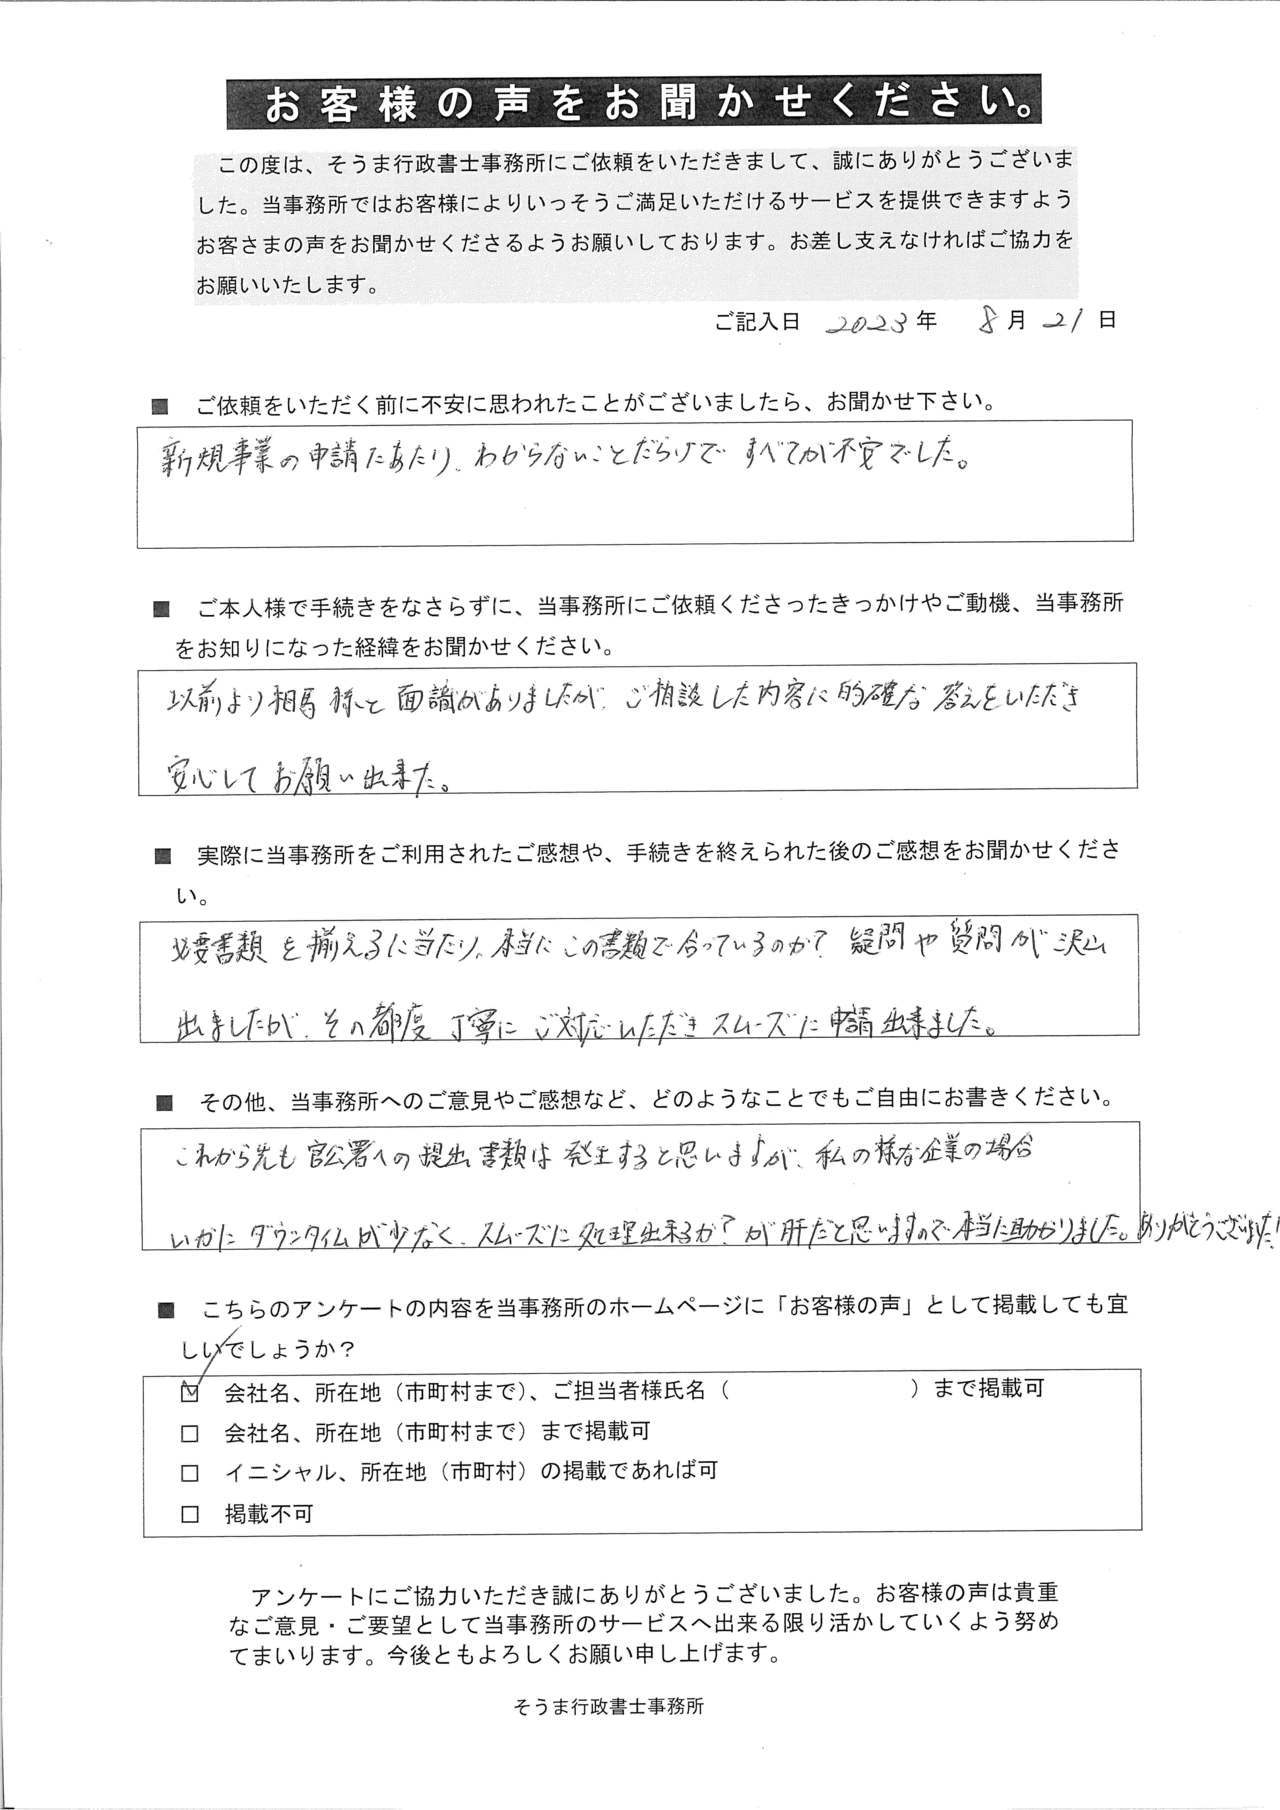 お客様の声をお聞かせください。
この度は、そうま行政書士事務所にご依頼をいただきまして、誠にありがとうございま
した。当事務所ではお客様によりいっそうご満足いただけるサービスを提供できますよう
お客さまの声をお聞かせくださるようお願いしております。お差し支えなければご協力を
お願いいたします。
ご記入日 2023年 8月21日
■ ご依頼をいただく前に不安に思われたことがございましたら、お聞かせ下さい。
新規事業の申請にあたり、わからないことだらけで すべてが不安でした。
■ ご本人様で手続きをなさらずに、当事務所にご依頼くださったきっかけやご動機、当事務所
をお知りになった経緯をお聞かせください。
以前より相馬様と面識がありましたが、ご相談した内容に的確な答えをいただき
安心してお願い出来た。
■ 実際に当事務所をご利用されたご感想や、手続きを終えられた後のご感想をお聞かせくださ
い。
必要書類を揃えるに当たり、本当にこの書類で合っているのか？疑問や質問が沢山
出ましたが、その都度丁寧にご対応いただきスムーズに申請出来ました。
■ その他、当事務所へのご意見やご感想など、どのようなことでもご自由にお書きください。
これから先も官公署への提出書類は発生すると思いますが、私の様な企業の場合
いかにダウンタイムが少なく、スムーズに処理出来るか？が肝だと思いますので本当に助かりました。ありがとうございました！
■ こちらのアンケートの内容を当事務所のホームページに「お客様の声」として掲載しても宜
しいでしょうか？
☑ 会社名、所在地（市町村まで）、ご担当者様氏名（ ）まで掲載可
□ 会社名、所在地（市町村まで）まで掲載可
□ イニシャル、所在地（市町村）の掲載であれば可
□ 掲載不可
アンケートにご協力いただき誠にありがとうございました。お客様の声は貴重
なご意見・ご要望として当事務所のサービスへ出来る限り活かしていくよう努め
てまいります。今後ともよろしくお願い申し上げます。
そうま行政書士事務所